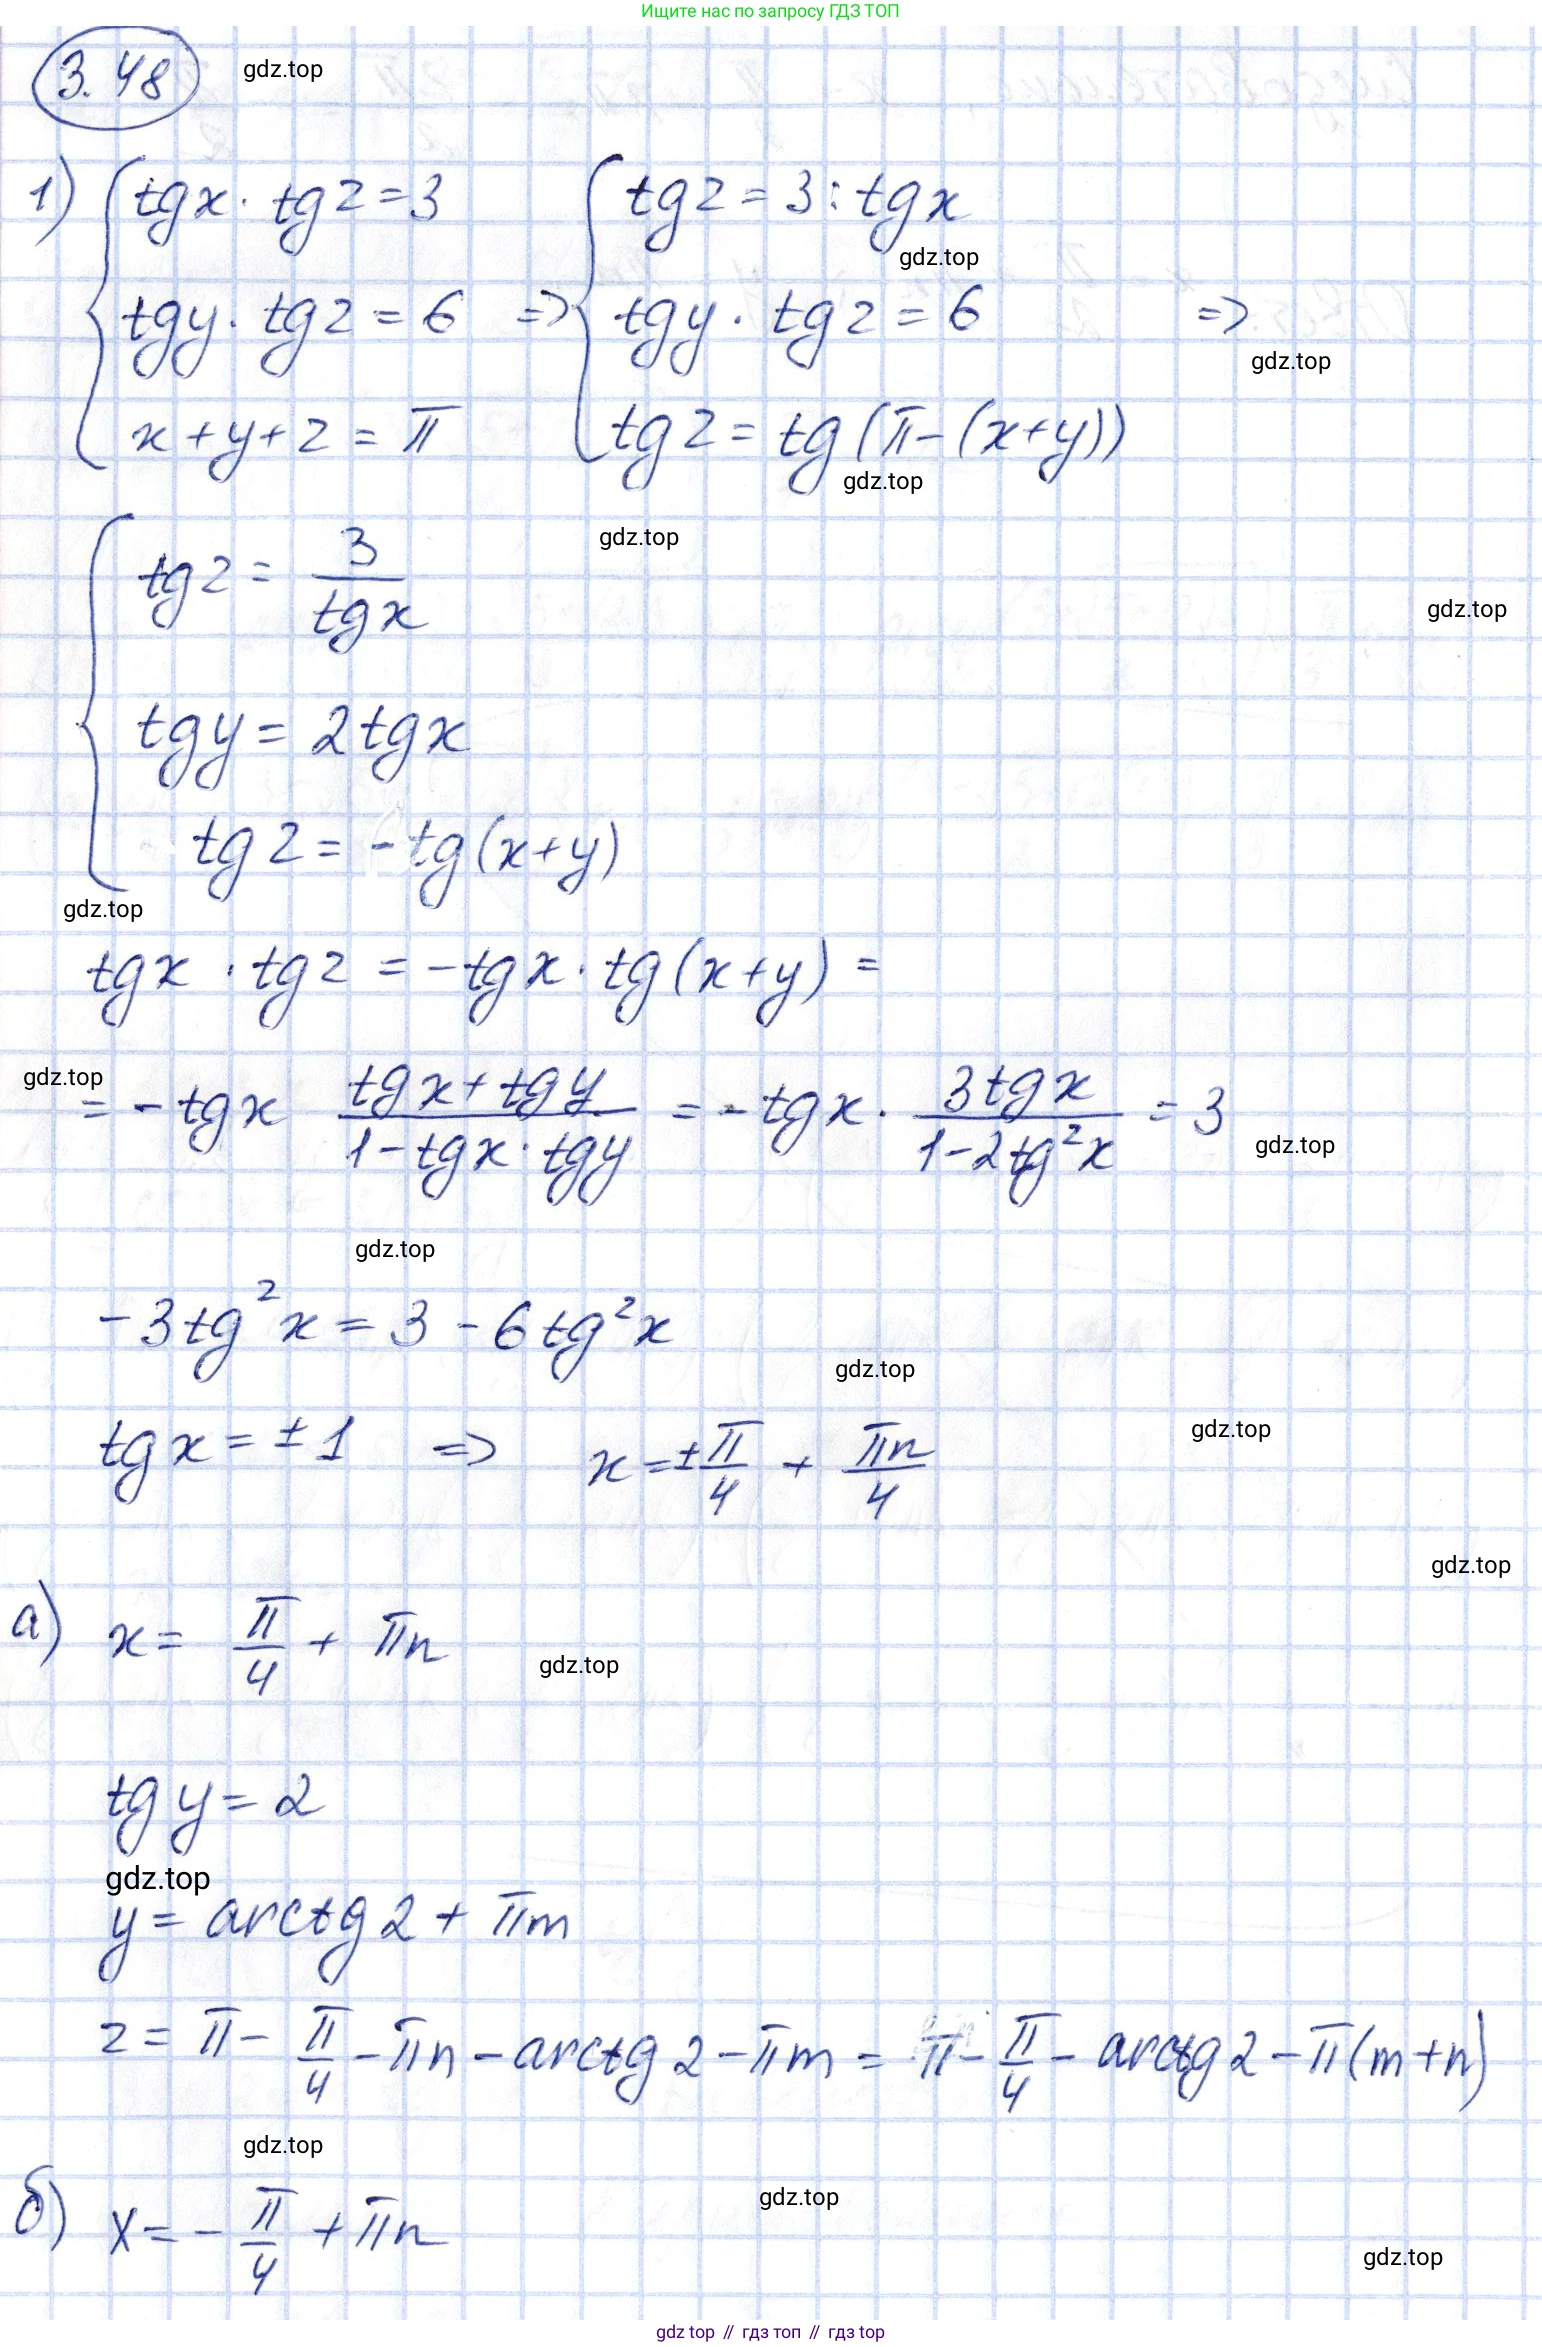 Ищите нас по запросу ГДЗ ТОП
3.48 gdz.top
1) { tgx · tgz = 3 { tgz = 3 : tgx
gdz.top
tgy · tgz = 6 => tgy · tgz = 6 =>
gdz.top
x + y + z = π tgz = tg(π - (x+y))
gdz.top
gdz.top
{ tgz = 3/tgx
gdz.top
tgy = 2tgx
tgz = -tg(x+y)
gdz.top
tgx · tgz = -tgx · tg(x+y) =
gdz.top
= -tgx (tgx + tgy)/(1 - tgx · tgy) = -tgx · 3tgx/(1 - 2tg²x) = 3
gdz.top
gdz.top
-3tg²x = 3 - 6tg²x
gdz.top
gdz.top
tgx = ±1 => x = ±π/4 + πn/4
gdz.top
а) x = π/4 + πn
gdz.top
tgy = 2
gdz.top
y = arctg2 + πm
z = π - π/4 - πn - arctg2 - πm = π - π/4 - arctg2 - π(m+n)
gdz.top
gdz.top
б) x = -π/4 + πn
gdz.top
gdz top // гдз топ // гдз top